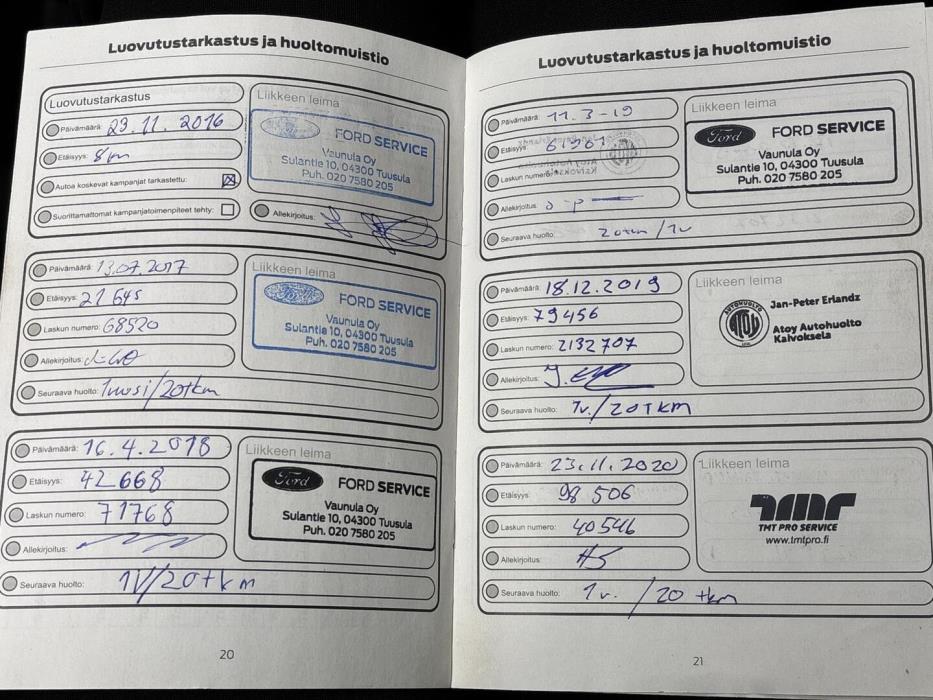 Luovutustarkastus ja huoltomuistio
Luovutustarkastus
Päivämäärä: 29.11.2016
Etäisyys: 8km
Autoa koskevat kampanjat tarkastettu:
Suorittamattomat kampanjatoimenpiteet tehty:
Liikkeen leima
FORD SERVICE
Vaunula Oy
Sulantie 10, 04300 Tuusula
Puh. 020 7580 205
Allekirjoitus:
Päivämäärä: 13.07.2017
Etäisyys: 21645
Laskun numero: 68520
Allekirjoitus:
Seuraava huolto: 1vuosi/20tkm
Liikkeen leima
Ford
FORD SERVICE
Vaunula Oy
Sulantie 10, 04300 Tuusula
Puh. 020 7580 205
Päivämäärä: 16.4.2018
Etäisyys: 42668
Laskun numero: 71768
Allekirjoitus:
Seuraava huolto: 1V/20tkm
Liikkeen leima
Ford
FORD SERVICE
Vaunula Oy
Sulantie 10, 04300 Tuusula
Puh. 020 7580 205
20
Luovutustarkastus ja huoltomuistio
Päivämäärä: 11.3-19
Etäisyys: 61361
Laskun numero:
Allekirjoitus:
Seuraava huolto: 20tkm/1v
Liikkeen leima
Ford
FORD SERVICE
Vaunula Oy
Sulantie 10, 04300 Tuusula
Puh. 020 7580 205
Päivämäärä: 18.12.2019
Etäisyys: 79456
Laskun numero: 2132707
Allekirjoitus:
Seuraava huolto: 1v./20TKM
Liikkeen leima
AUTOHUOLTO
ATOY
Jan-Peter Erlandz
Atoy Autohuolto
Kaivoksela
Päivämäärä: 23.11.2020
Etäisyys: 98 506
Laskun numero: 40546
Allekirjoitus: HS
Seuraava huolto: 1v. / 20 tkm
Liikkeen leima
TMT
TMT PRO SERVICE
www.tmtpro.fi
21